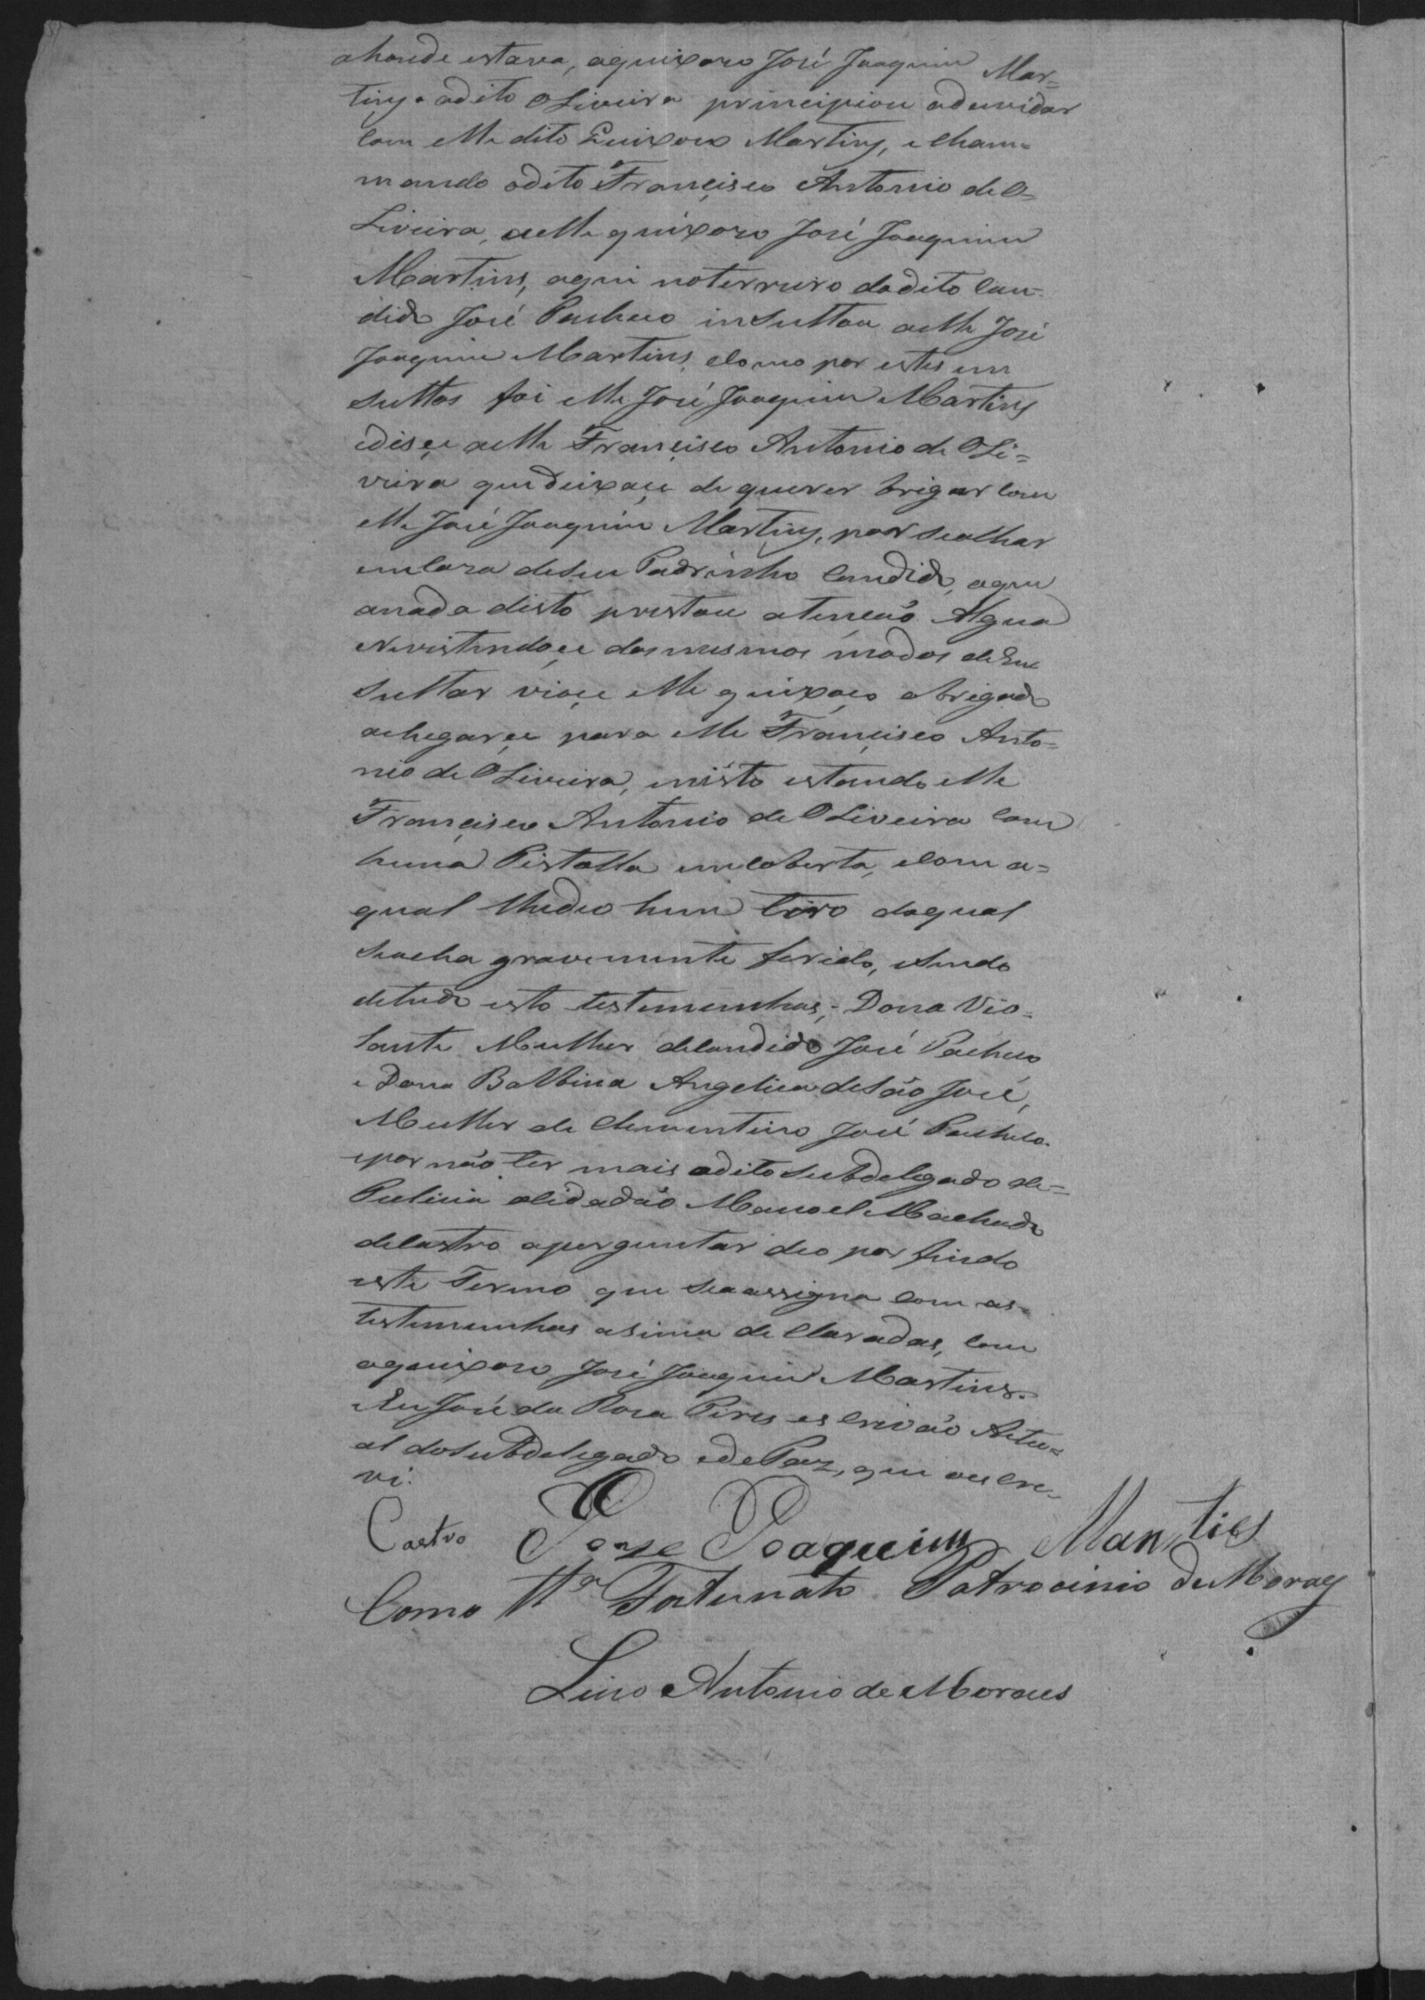 ahonde estava, aquixozo José Joaquim Mar=
tins. odito OLiveira principiou aduvidar
com elle dito Quixozo Martins, e cham=
mando odito Francisco Antonio de O=
Liveira, aelle quixozo José Joaquim
Martins, aqui noterreiro dodito Can=
dido José Pacheco insultou aelle José
Joaquim Martins, ecomo por estes in
sultos foi elle José Joaquim Martins
edisçe aelle Francisco Antonio de OLi=
veira quedeixaçe de querer brigar com
elle José Joaquim Martins, por seolhar
emcaza deseu Padrinho Candido, aque
anada disto prestou atencão Algua
Revistindoçe dosmesmos modos de En
sultar vioçe elle quixozo obrigado
achegarçe para elle Francisco Anto=
nio de OLiveira, enisto estando elle
Francisco Antonio de OLiveira com
huma Pistolla emcoberta, ecom a=
qual lhedeo hum tiro doqual
seacha gravemente ferido, esendo
detudo isto testemunhas,- Dona Vio=
lante Mulher deCandido José Pacheco
e Dona Balbina Angelica deSão José,
Mulher de Clementino José Pacheco.
epor não ter mais odito subdelegado de=
Pulicia oCidadão Manoel Machado
deCastro aperguntar deo por findo
este Termo que seassigna com as=
testemunhas asima declaradas, com
aquixozo José Joaquim Martins.
Eu José da Roza Pires escrivão Actu=
al doSubdelegado edePaz, que oescre=
vi.
Castro Joze Joaquim Manties
Como Ttª Fortunato Patrocinio de Moraes
Lino Antonio de Moraes